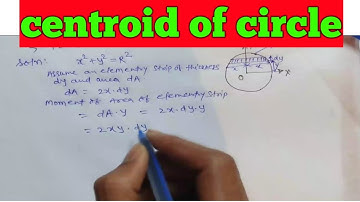 centroid of circle
Soln: x² + y² = R²
Assume an elementry strip of thickness
dy and area dA.
dA = 2x·dy
Moment of Area of elementry strip
= dA·y = 2x·dy·y
= 2xy·dy
dy
x
x
y
O
x